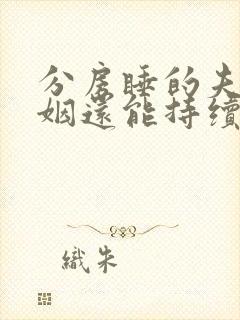 分房睡的夫
姻還能持續
織朱